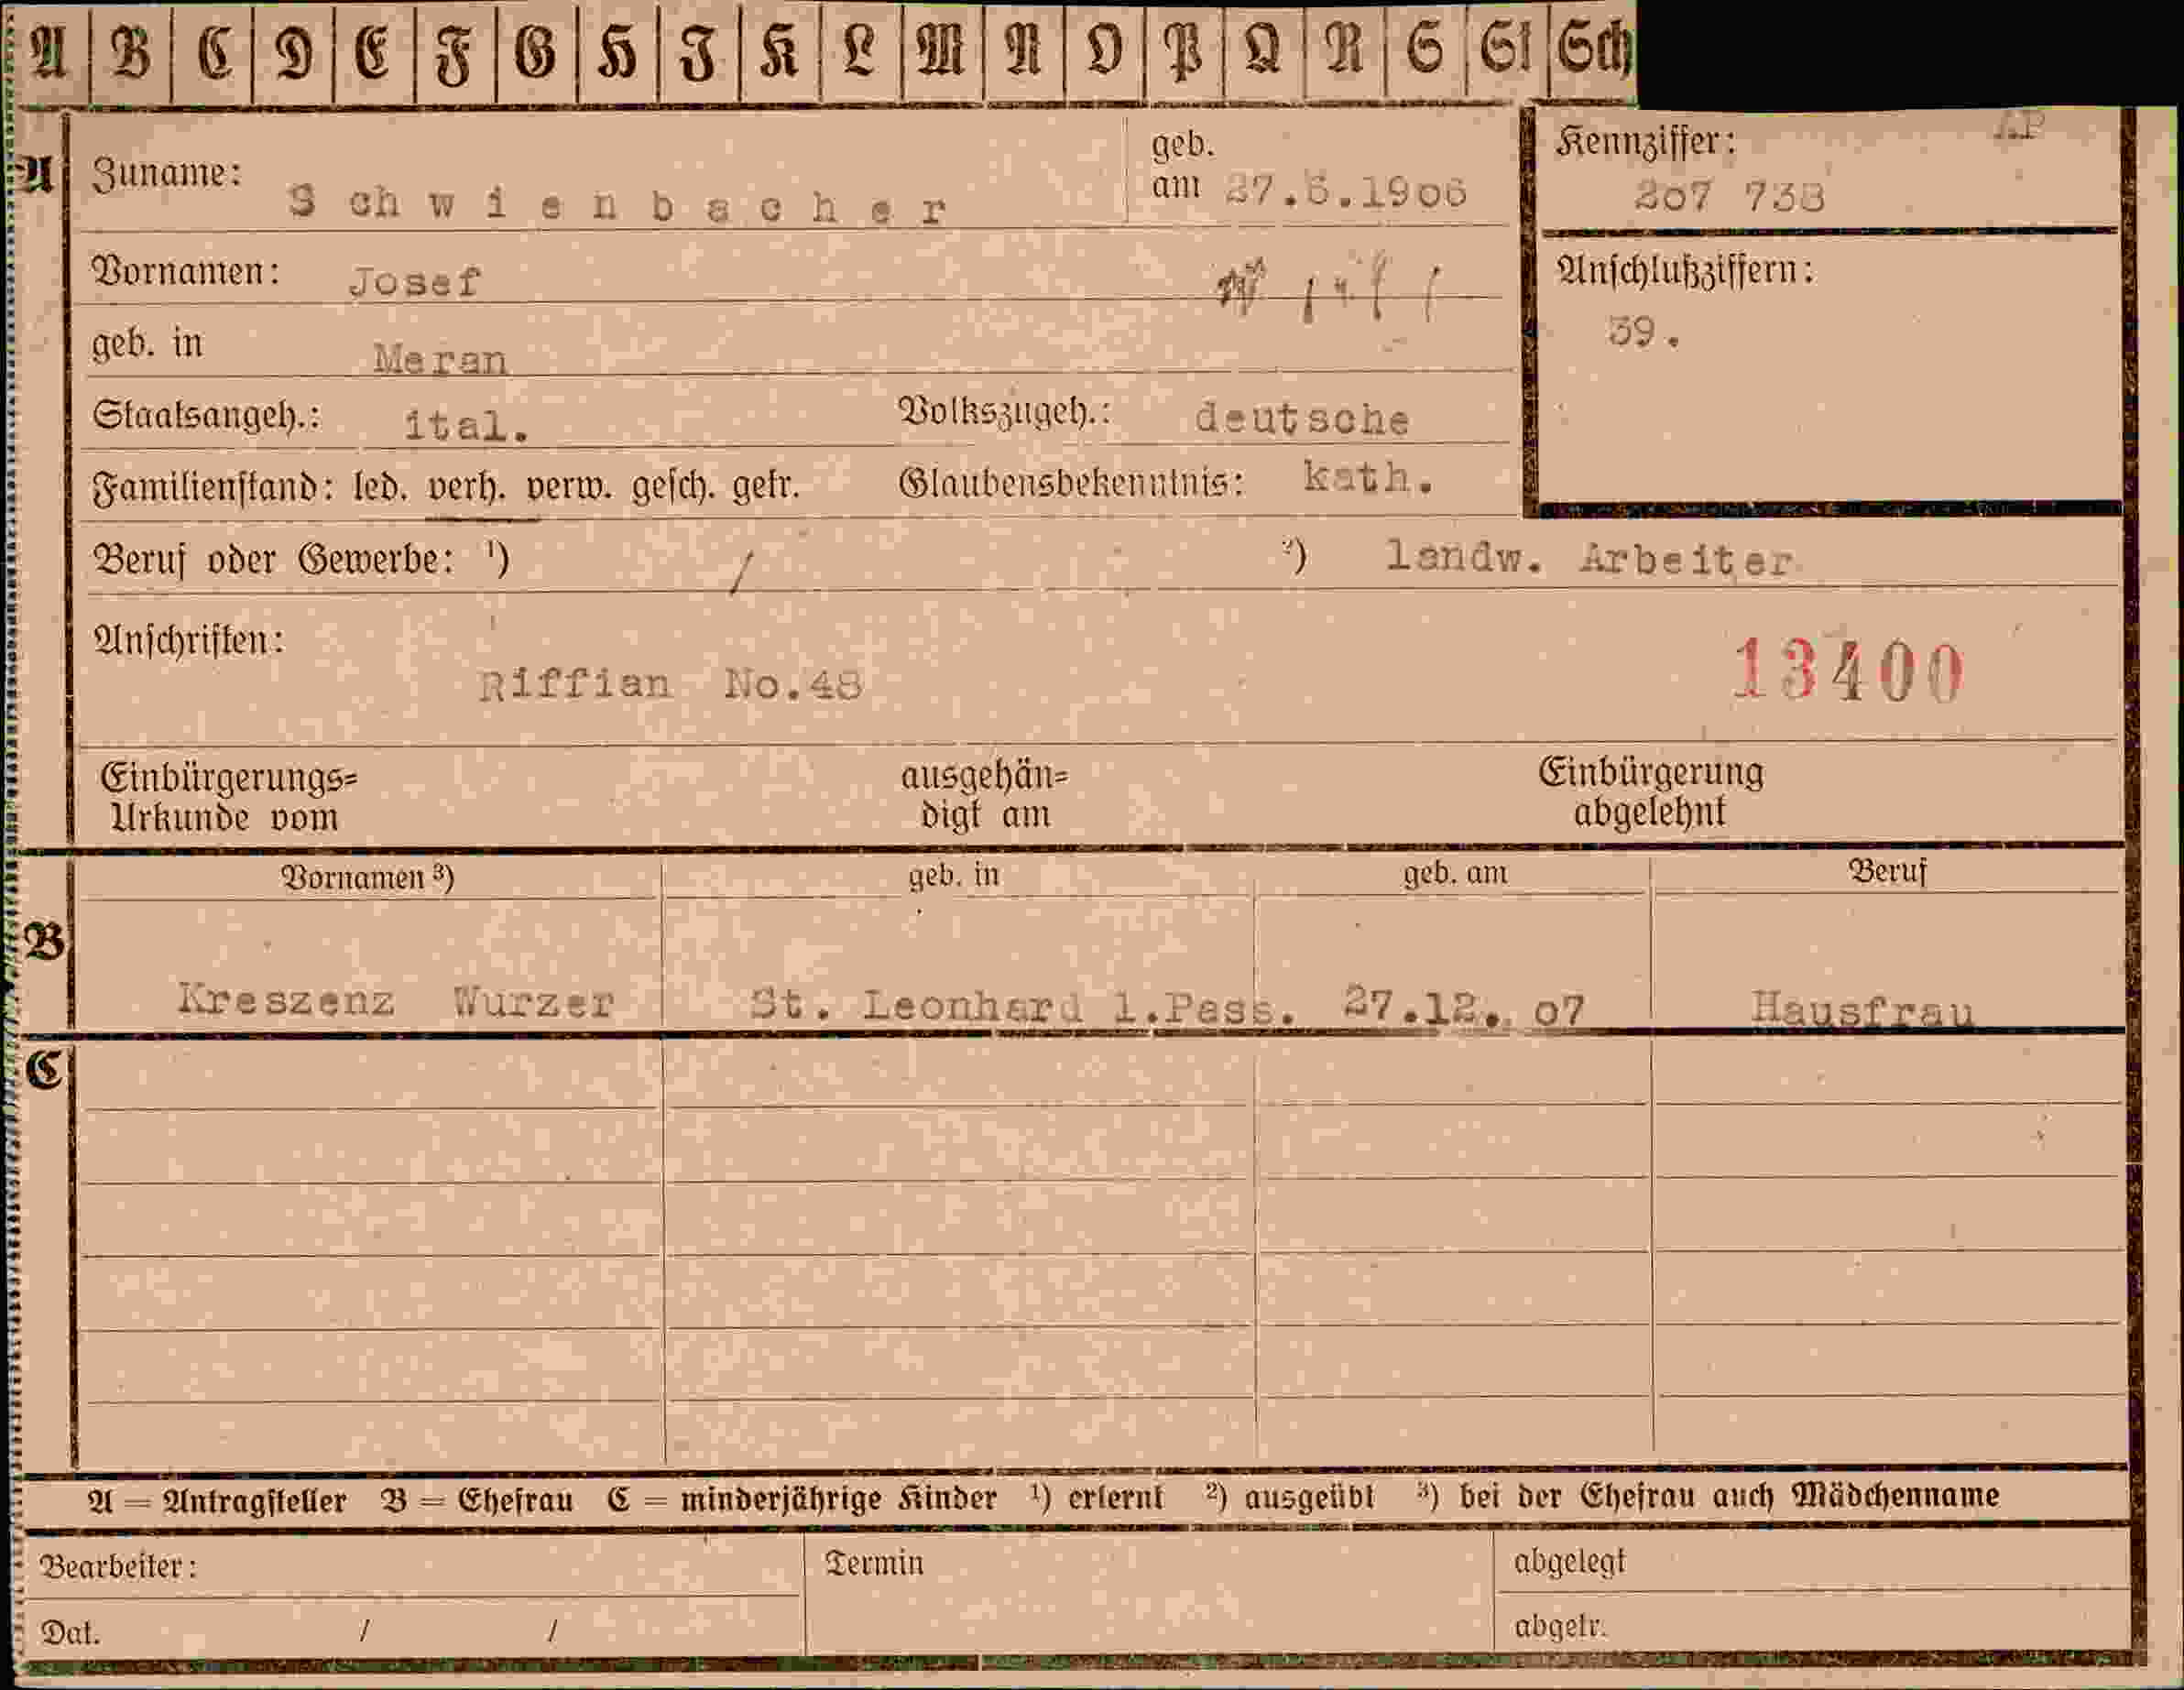 A B C D E F G H J K L M N O P Q R S St Sch
A Zuname: Schwienbacher geb. am 27.6.1906
Kennziffer: 207 738
Vornamen: Josef
Anschlußziffern:
39.
geb. in Meran
Staatsangeh.: ital. Volkszugeh.: deutsche
Familienstand: led. verh. verw. gesch. getr. Glaubensbekenntnis: kath.
Beruf oder Gewerbe: ¹) / ²) landw. Arbeiter
Anschriften:
Riffian No.48
13400
Einbürgerungs= ausgehän= Einbürgerung
Urkunde vom digt am abgelehnt
Vornamen ³) geb. in geb. am Beruf
B
Kreszenz Wurzer St. Leonhard i.Pass. 27.12. 07 Hausfrau
C
A = Antragsteller B = Ehefrau C = minderjährige Kinder ¹) erlernt ²) ausgeübt ³) bei der Ehefrau auch Mädchenname
Bearbeiter: Termin abgelegt
Dat. / / abgetr.